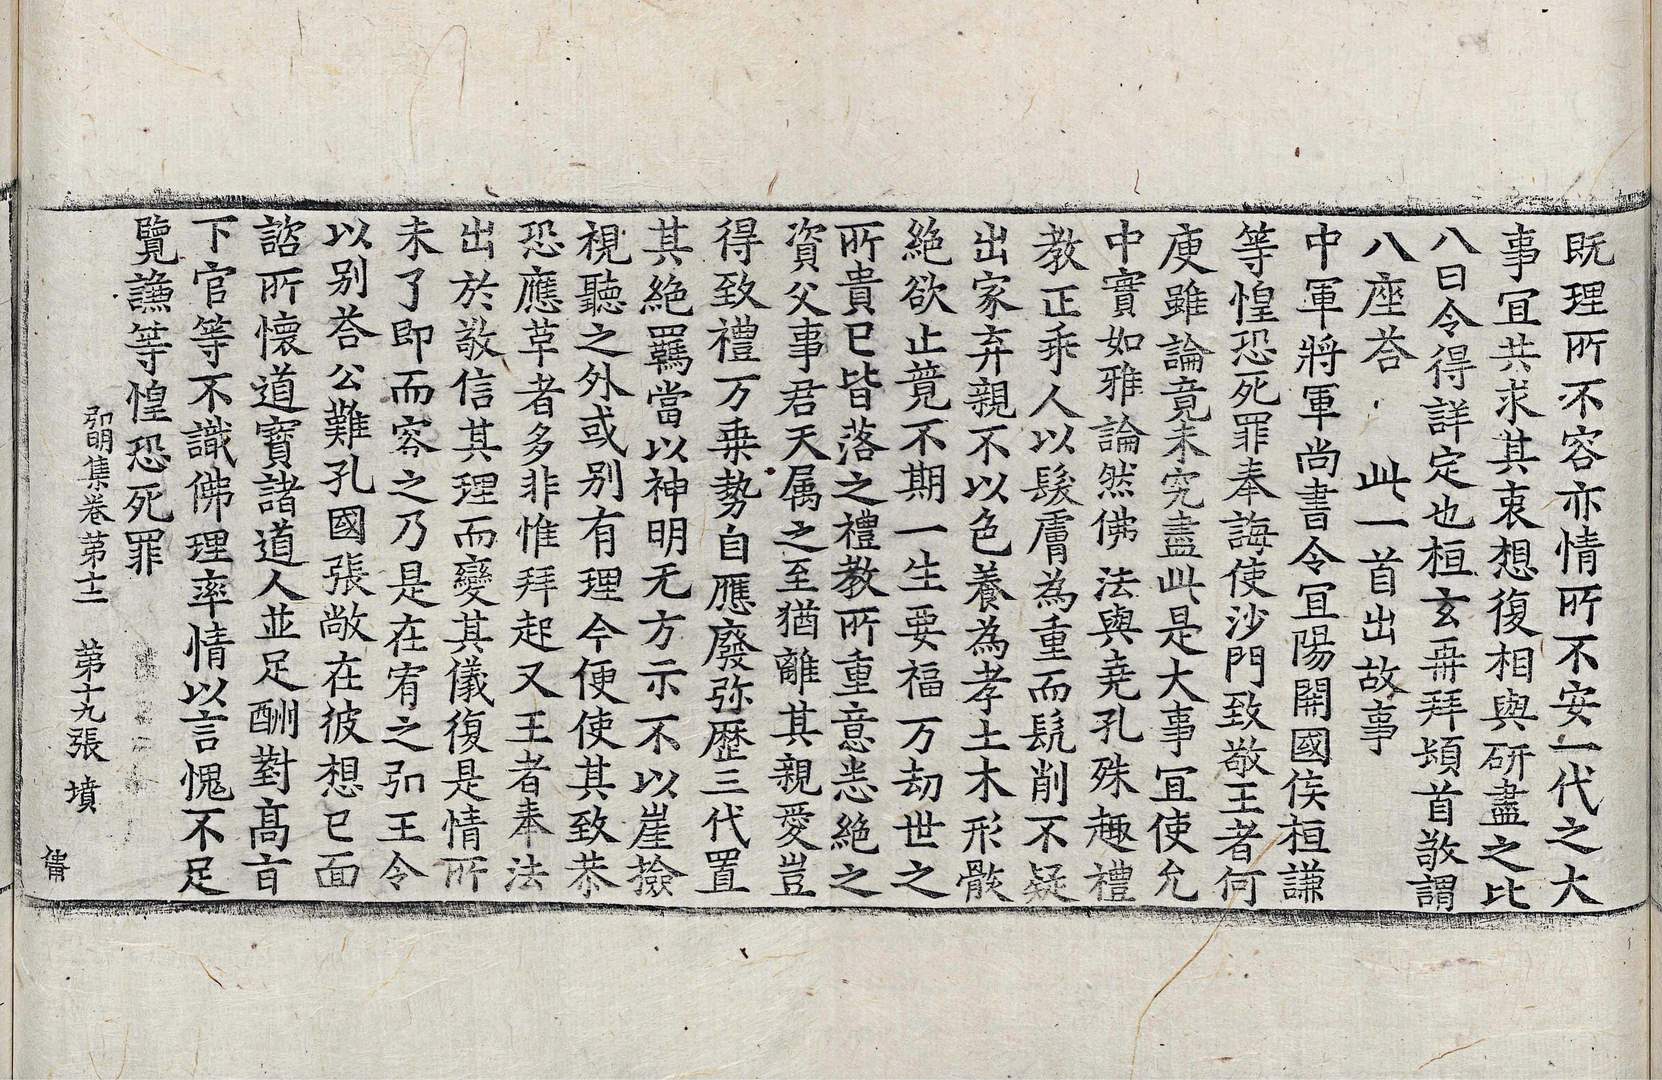 既理所不容亦情所不安一代之大
事宜共求其衷想復相與研盡之比
八日令得詳定也桓玄再拜頓首敬謂
八座荅　此一首出故事
中軍將軍尚書令宜陽開國侯桓謙
等惶恐死罪奉誨使沙門致敬王者何
庾雖論竟未究盡此是大事宜使允
中實如雅論然佛法與堯孔殊趣禮
教正乖人以髮膚為重而髡削不疑
出家弃親不以色養為孝土木形骸
絶欲止競不期一生要福万劫世之
所貴已皆落之禮教所重意悉絶之
資父事君天属之至猶離其親愛豈
得致禮万乗勢自應廢弥歷三代置
其絶羈當以神明无方示不以崖撿
視聽之外或别有理今便使其致恭
恐應草者多非惟拜起又王者奉法
出於敬信其理而變其儀復是情所
未了即而容之乃是在宥之弘王令
以别荅公難孔國張敞在彼想已面
諮所懷道寶諸道人並足酬對髙旨
下官等不識佛理率情以言愧不足
覽謙等惶恐死罪
弘明集卷第十二　第十九張　墳